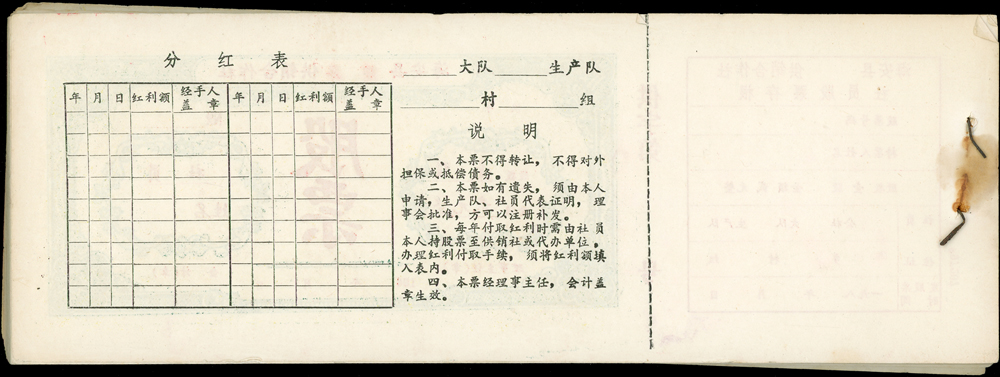 分 红 表
年 月 日 红利额 经手人盖章 年 月 日 红利额 经手人盖章
______大队______生产队
______村______组
说 明
一、本票不得转让，不得对外
担保或抵偿债务。
二、本票如有遗失，须由本人
申请，生产队、社员代表证明，理
事会批准，方可以注册补发。
三、每年付取红利时需由社员
本人持股票至供销社或代办单位。
办理红利付取手续，须将红利额填
入表内。
四、本票经理事主任，会计盖
章生效。